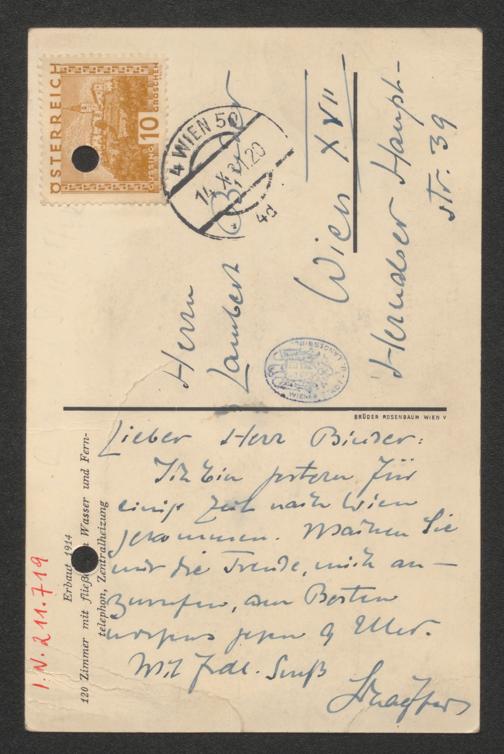 ÖSTERREICH
10 GROSCHEN
GÜSSING
4 WIEN 50
4d
Herrn
Lambert Binder
Wien XVII
Hernalser Haupt-
str. 39
BRÜDER ROSENBAUM WIEN V
Lieber Herr Binder:
Ich bin gestern für
einige Zeit nach Wien
gekommen. Machen Sie
mir die Freude, mich an-
zurufen, am Besten
morgens gegen 9 Uhr.
Mit frdl. Gruß
Erbaut 1914
120 Zimmer mit fließ Wasser und Fern-
telephon, Zentralheizung
I.N. 211.719